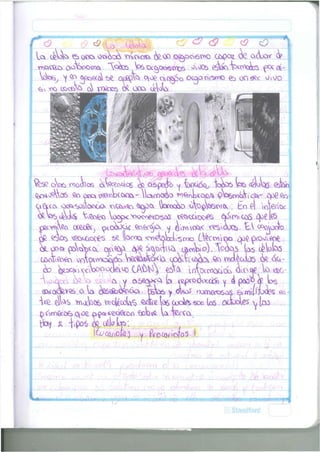 La célula
La célula es una unidad mínima de un organismo capaz de actuar de
manera autónoma. Todos los organismos vivos están formados por cé-
lulas, y en general se acepta que ningún organismo es un ser vivo
si no consta al menos de una célula.
Características generales de la célula
células están
envueltas en una membrana llamada membrana plasmática que en-
una sustancia rica en agua llamada citoplasma. En el interior
de las células tienen lugar numerosas reacciones químicas que les
permiten crecer, producir energía y eliminar residuos. El conjunto
de estas reacciones se llama metabolismo (término que proviene
de una palabra griega que significa cambio). Todas las células
contienen información hereditaria codificada en moléculas de áci-
do desoxirribonucleico (ADN); esta información dirige la ac-
y asegura la reproducción y el paso de los
caracteres a la descendencia. Estas y otras numerosas similitudes en-
las células actuales y las
primeras que aparecieron sobre la tierra.
Hay 2 tipos de células:
Eucariotas y Procariotas
Standford